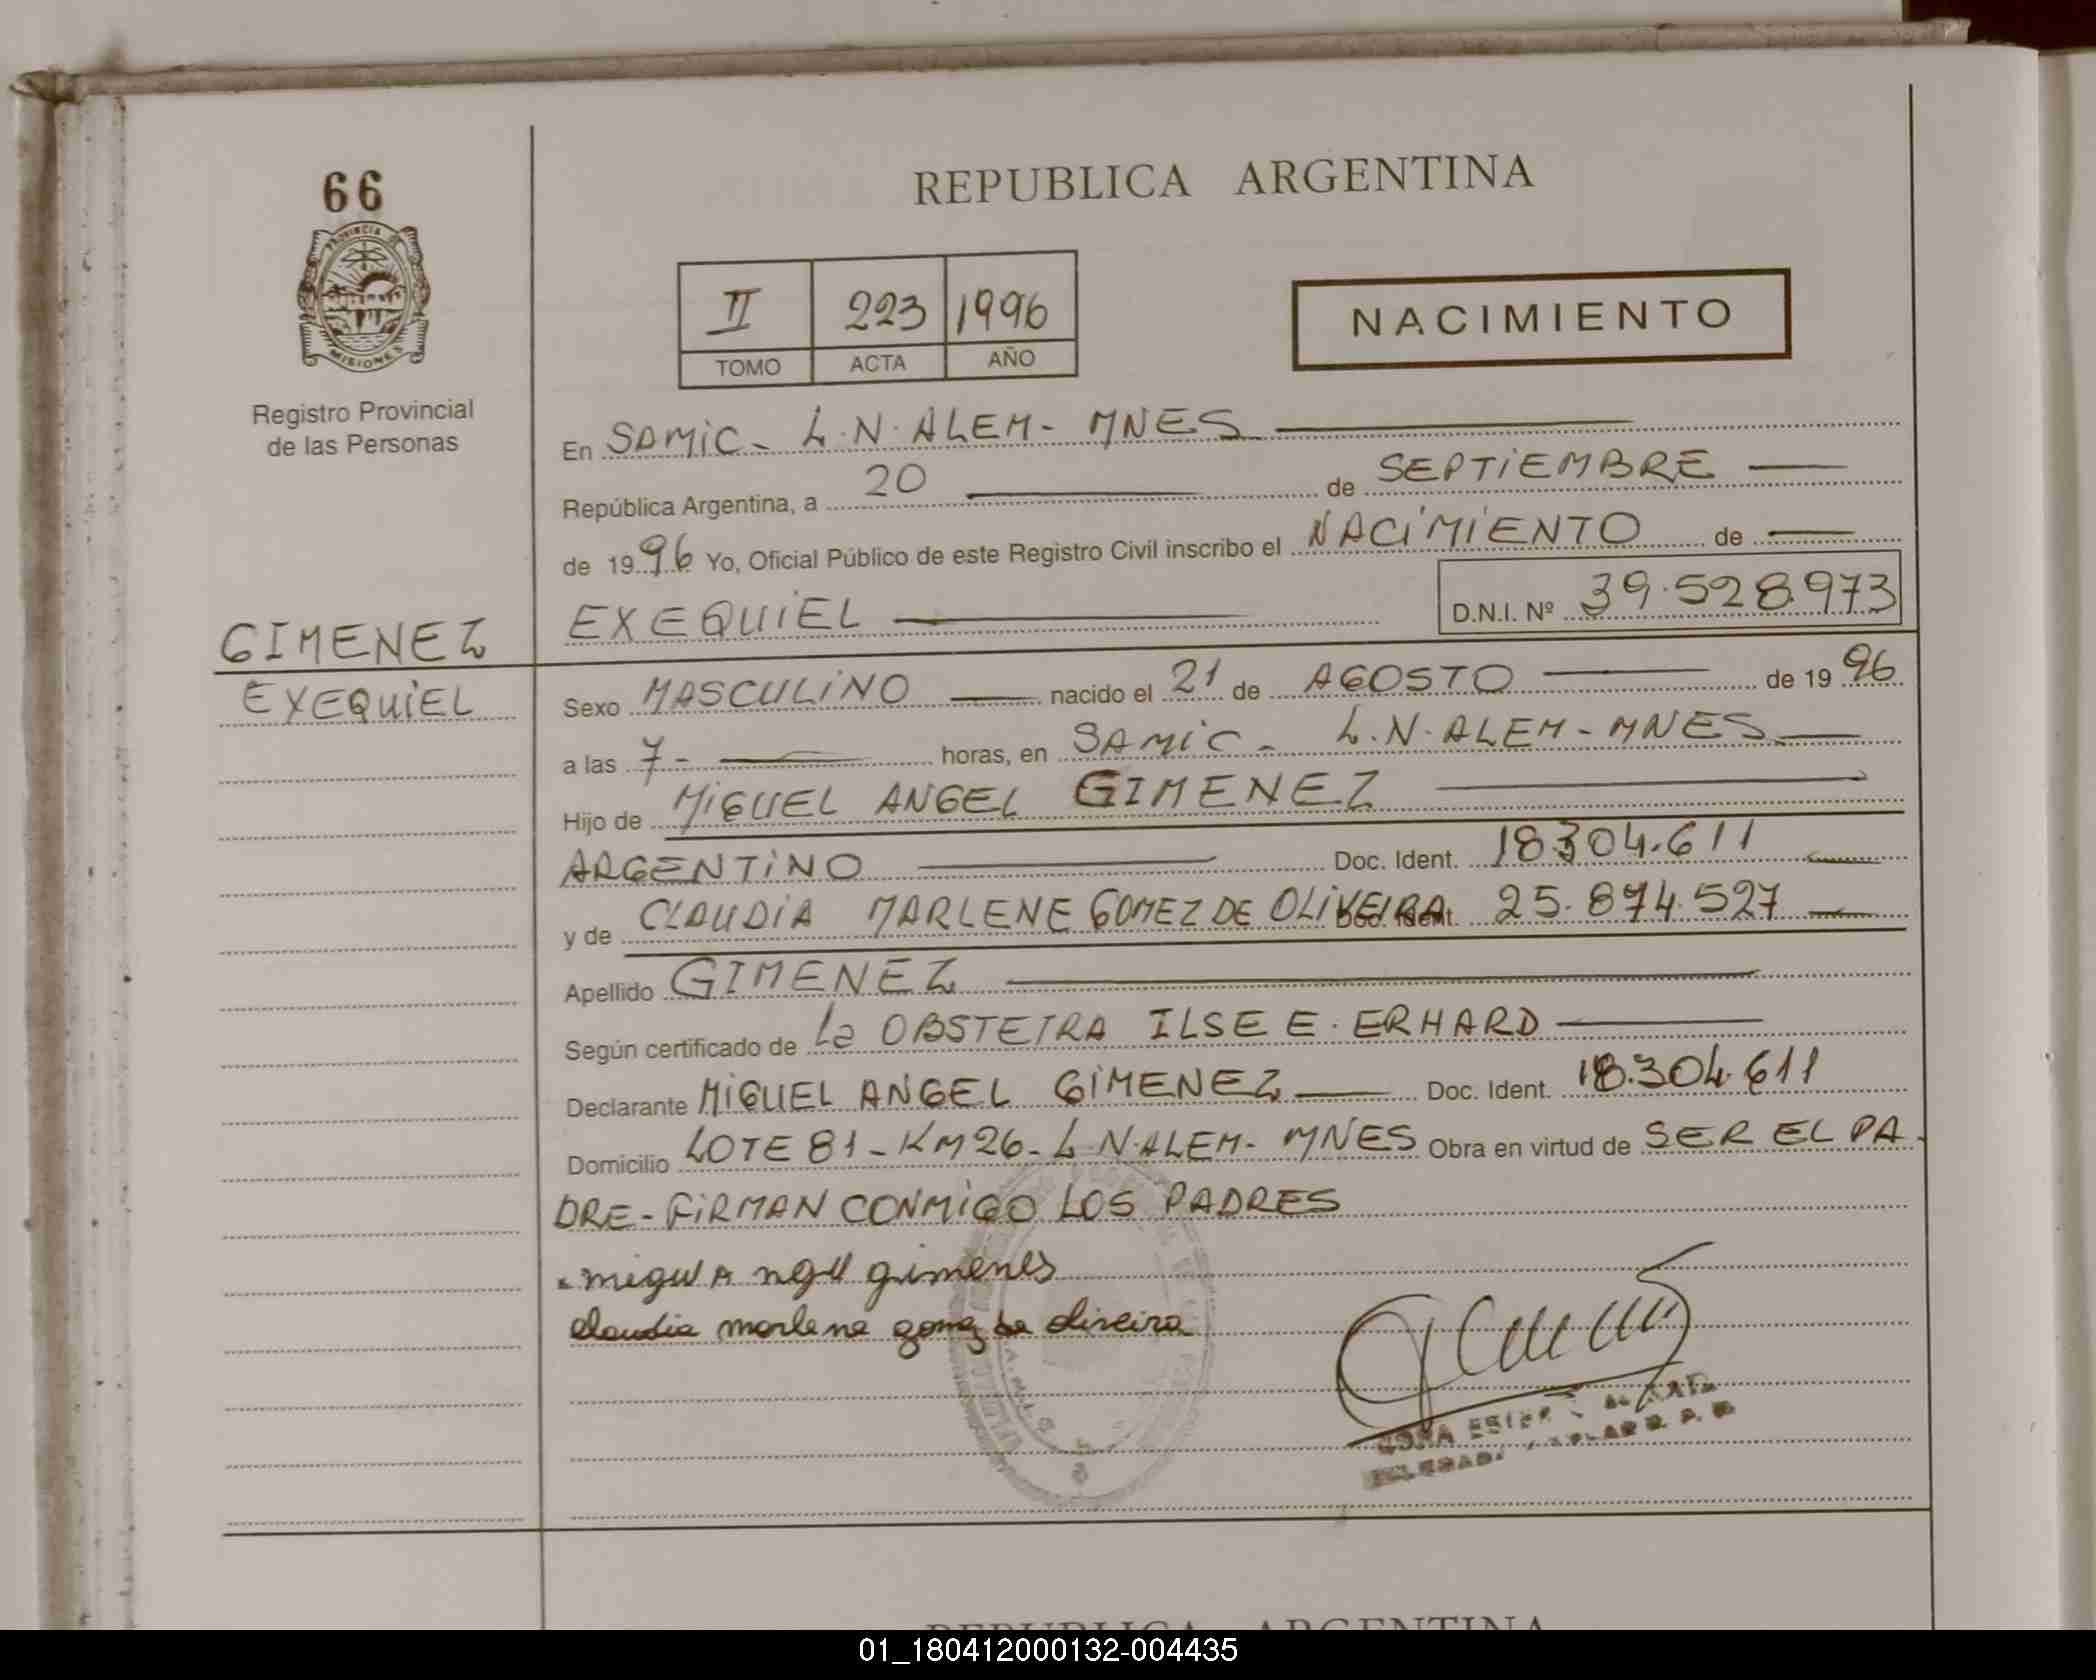 66
REPUBLICA ARGENTINA
PROVINCIA DE
MISIONES
Registro Provincial
de las Personas
II 223 1996
TOMO ACTA AÑO
NACIMIENTO
En SAMIC - L.N. ALEM - MNES
República Argentina, a 20 de SEPTIEMBRE
de 1996 Yo, Oficial Público de este Registro Civil inscribo el NACIMIENTO de
EXEQUIEL D.N.I. Nº 39.528.973
GIMENEZ
EXEQUIEL
Sexo MASCULINO nacido el 21 de AGOSTO de 1996
a las 7 - horas, en SAMIC - L.N. ALEM - MNES
Hijo de MIGUEL ANGEL GIMENEZ
ARGENTINO Doc. Ident. 18.304.611
y de CLAUDIA MARLENE GOMEZ DE OLIVEIRA Doc. Ident. 25.874.527
Apellido GIMENEZ
Según certificado de La OBSTETRA ILSE E. ERHARD
Declarante MIGUEL ANGEL GIMENEZ Doc. Ident. 18.304.611
Domicilio LOTE 81 - KM 26 - L.N. ALEM - MNES Obra en virtud de SER EL PA-
DRE - FIRMAN CONMIGO LOS PADRES
migul A ngel gimenes
claudia marlene gomez de oliveira
REPUBLICA ARGENTINA
01_180412000132-004435